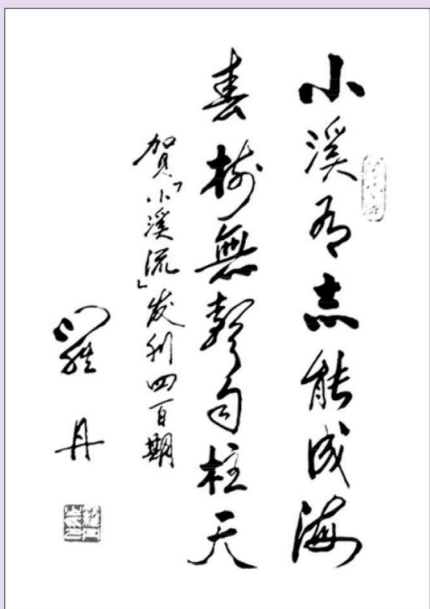 小溪有志能成海
春樹無聲自柱天
賀「小溪流」发刊四百期
羅丹